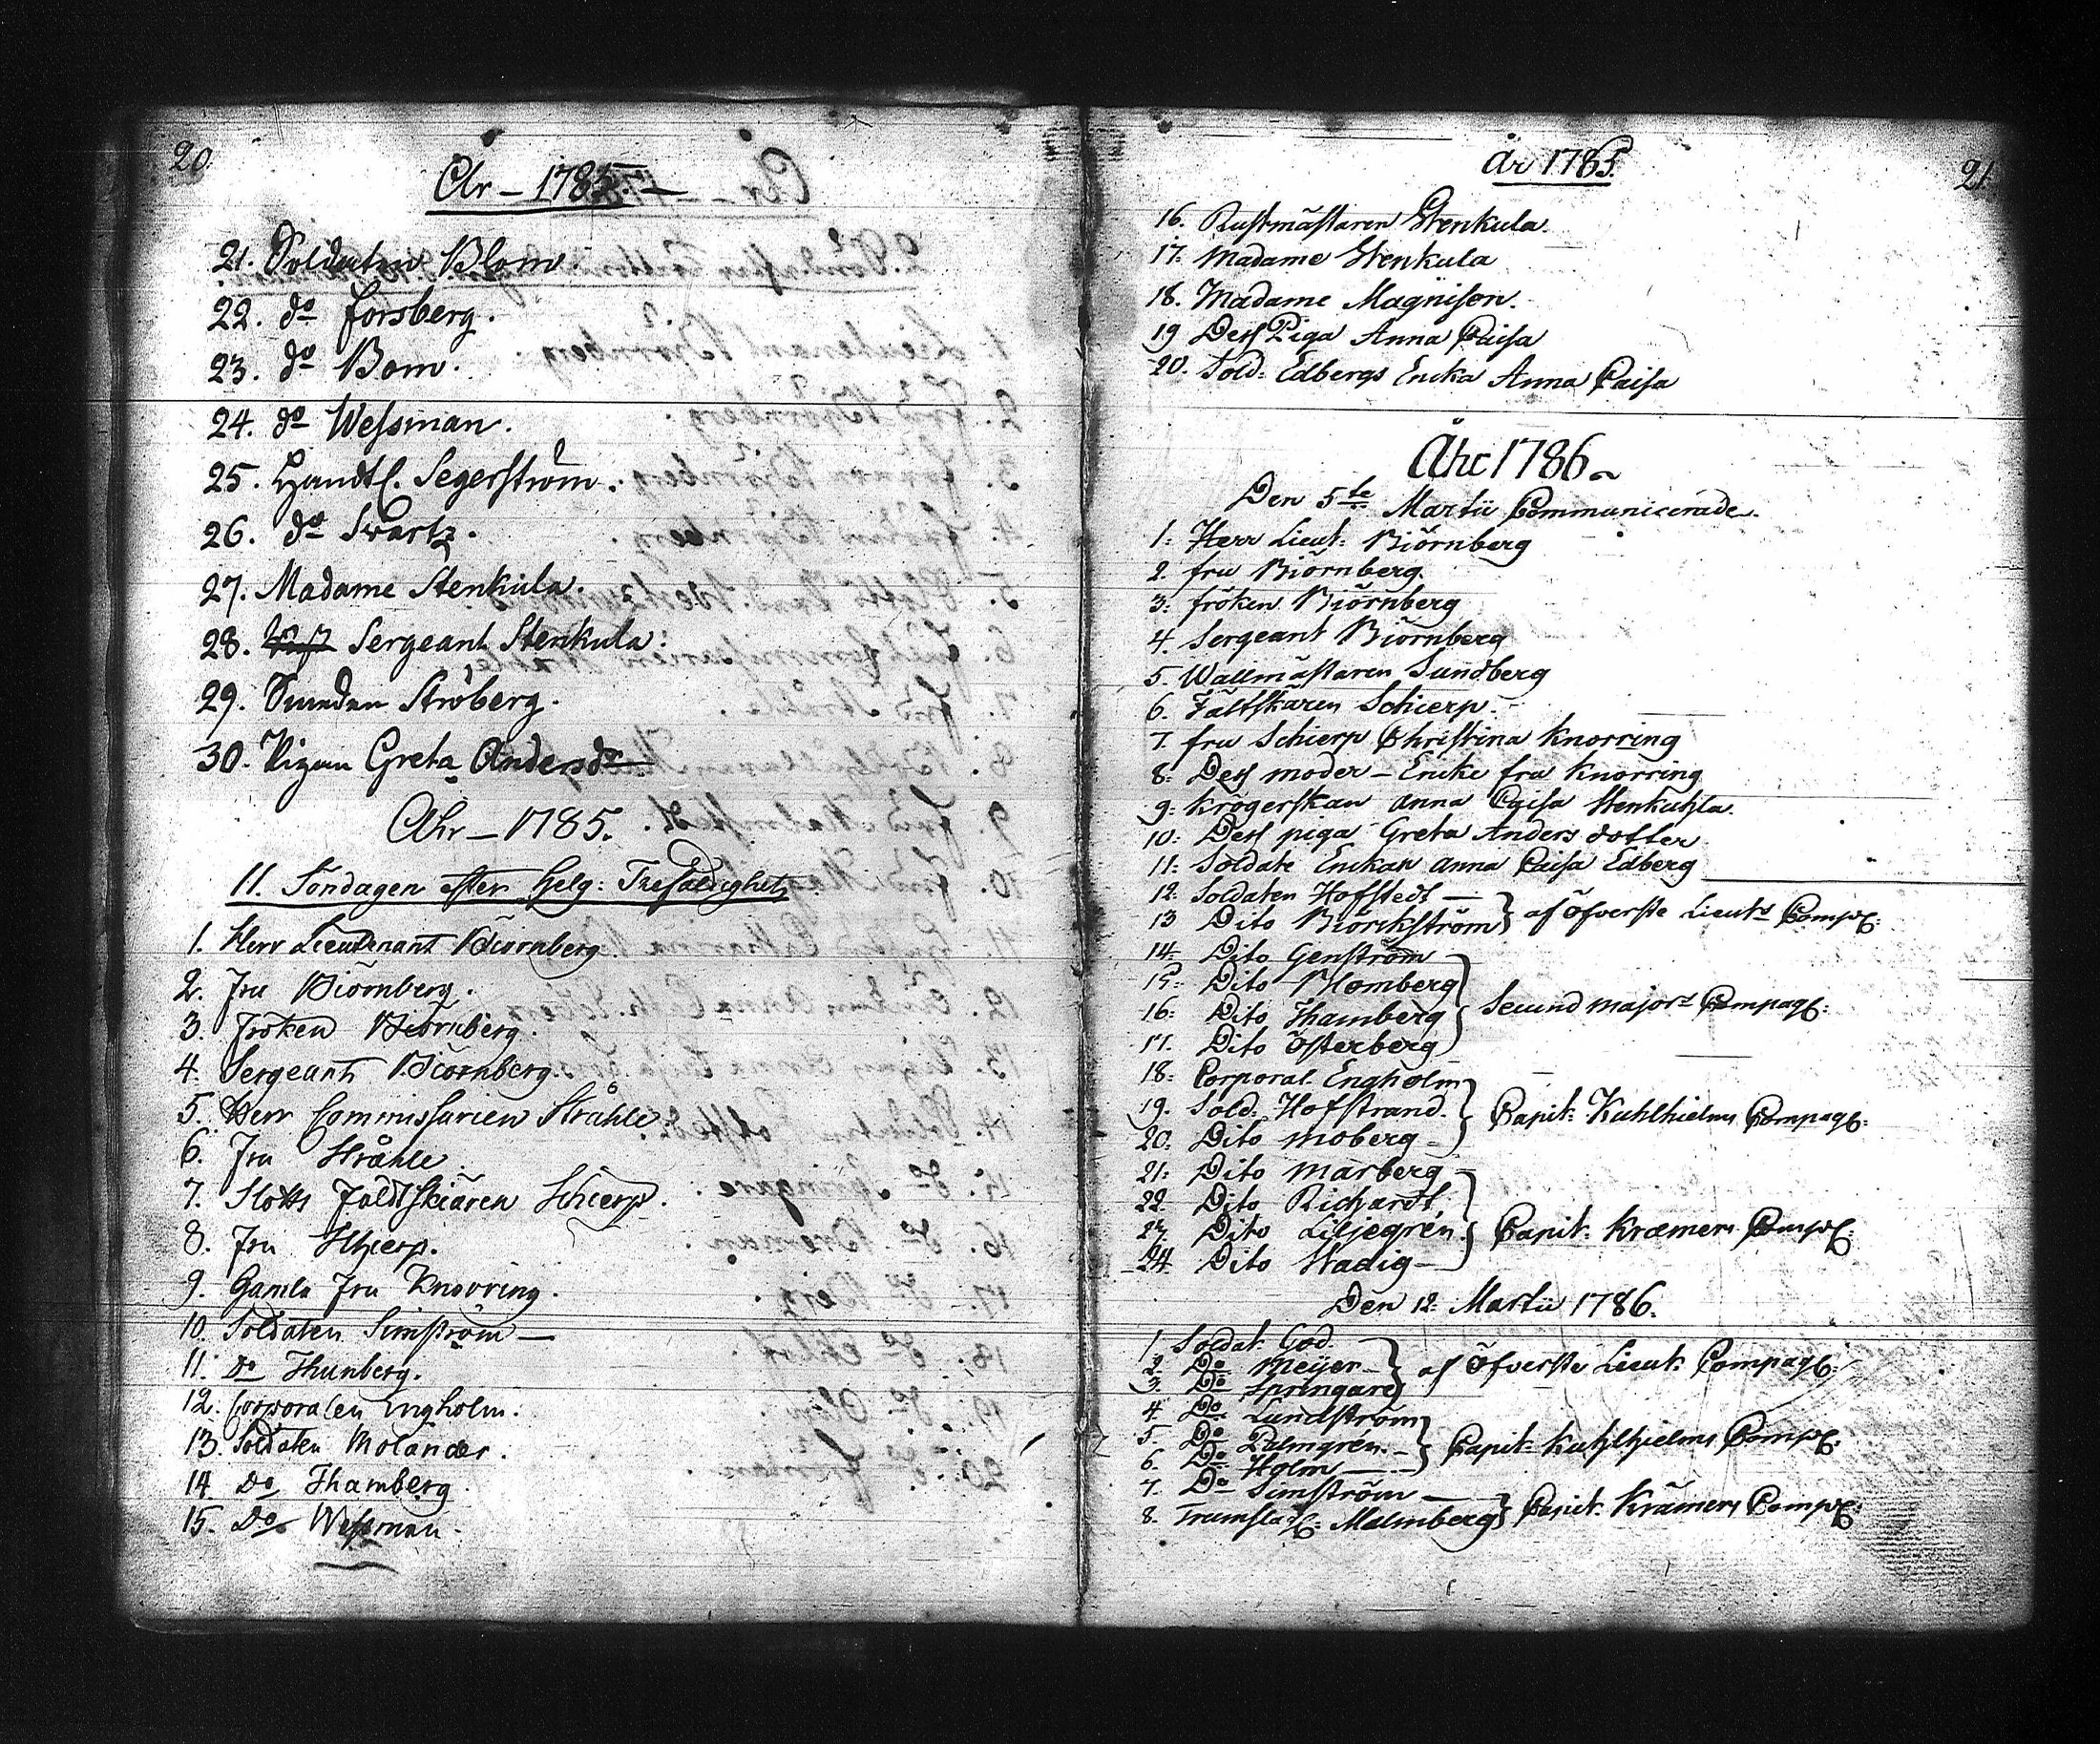 20.
Ahr – 1785. –
21. Soldaten Blom
22. do Forsberg.
23. do Bom.
24. do Wessman.
25. Handtl. Segerström.
26. do Swartz.
27. Madame Stenkula.
28. Sergeant Stenkula:
29. Ströberg.
30. Pigan Greta Andersdr
Ahr – 1785.
11. Söndagen efter Helg: Trefaldighets
1. Herr Lieutenant Biörnberg
2. Fru Biörnberg.
3. Fröken Biörnberg.
4. Sergeant Biörnberg.
5. Herr Commissarien Stråhle.
6. Fru Stråhle.
7. Slotts Fäldtskiären Schierp.
8. Fru Schierp.
9. Gamla Fru Knorring.
10. Soldaten Simström —
11. Do Thunberg.
12. Corporalen Engholm.
13. Soldaten Molander.
14. Do Thamberg
15. Do Wessman.
21.
År 1785.
16. Rustmästaren Stenkula.
17. Madame Stenkula
18. Madame Magnison.
19 Dess Piga Anna Caisa
20. Sold: Edbergs Encka Anna Caisa
Åhr 1786
Den 5te Martii Communicerade.
1. Herr Lieut: Biörnberg
2. fru Biörnberg.
3: fröken Biörnberg
4. Sergeant Biörnberg
5. Wallmästaren Sundberg
6. Fältskären Schierp.
7. fru Schierp Christina Knorring
8: Dess moder – Encke fru Knorring
9: Krögerskan Anna Caisa Stenkuhla.
10: Dess piga Greta Anders dotter
11: Soldate Enckan Anna Caisa Edberg
12. Soldaten Hoffstedt —
13 Dito Biörckström } af Öfverste Lieuts Compg:
14: Dito Genström
15: Dito Blomberg
16: Dito Thamberg } Secund majors Compag:
17. Dito Österberg
18: Corporal Engholm
19. Sold: Hofstrand. } Capit: Kuhlhielms Compag:
20. Dito Moberg –
21: Dito Marberg
22. Dito Richardt,
23. Dito Liljegrén. } Capit: Kræmers Compg:
24. Dito Wadig –
Den 12: Martii 1786.
1. Soldat: God.
2. Do Meijer – } af Öfverste Lieut: Compag:
3. Do Springare
4. Do Lundström
5. Do Palmgrén. – } Capit: Kuhlhielms Compg:
6. Do Holm —
7. Do Simström —
8. Trumsla: Malmberg } Capit: Krämers Compg: